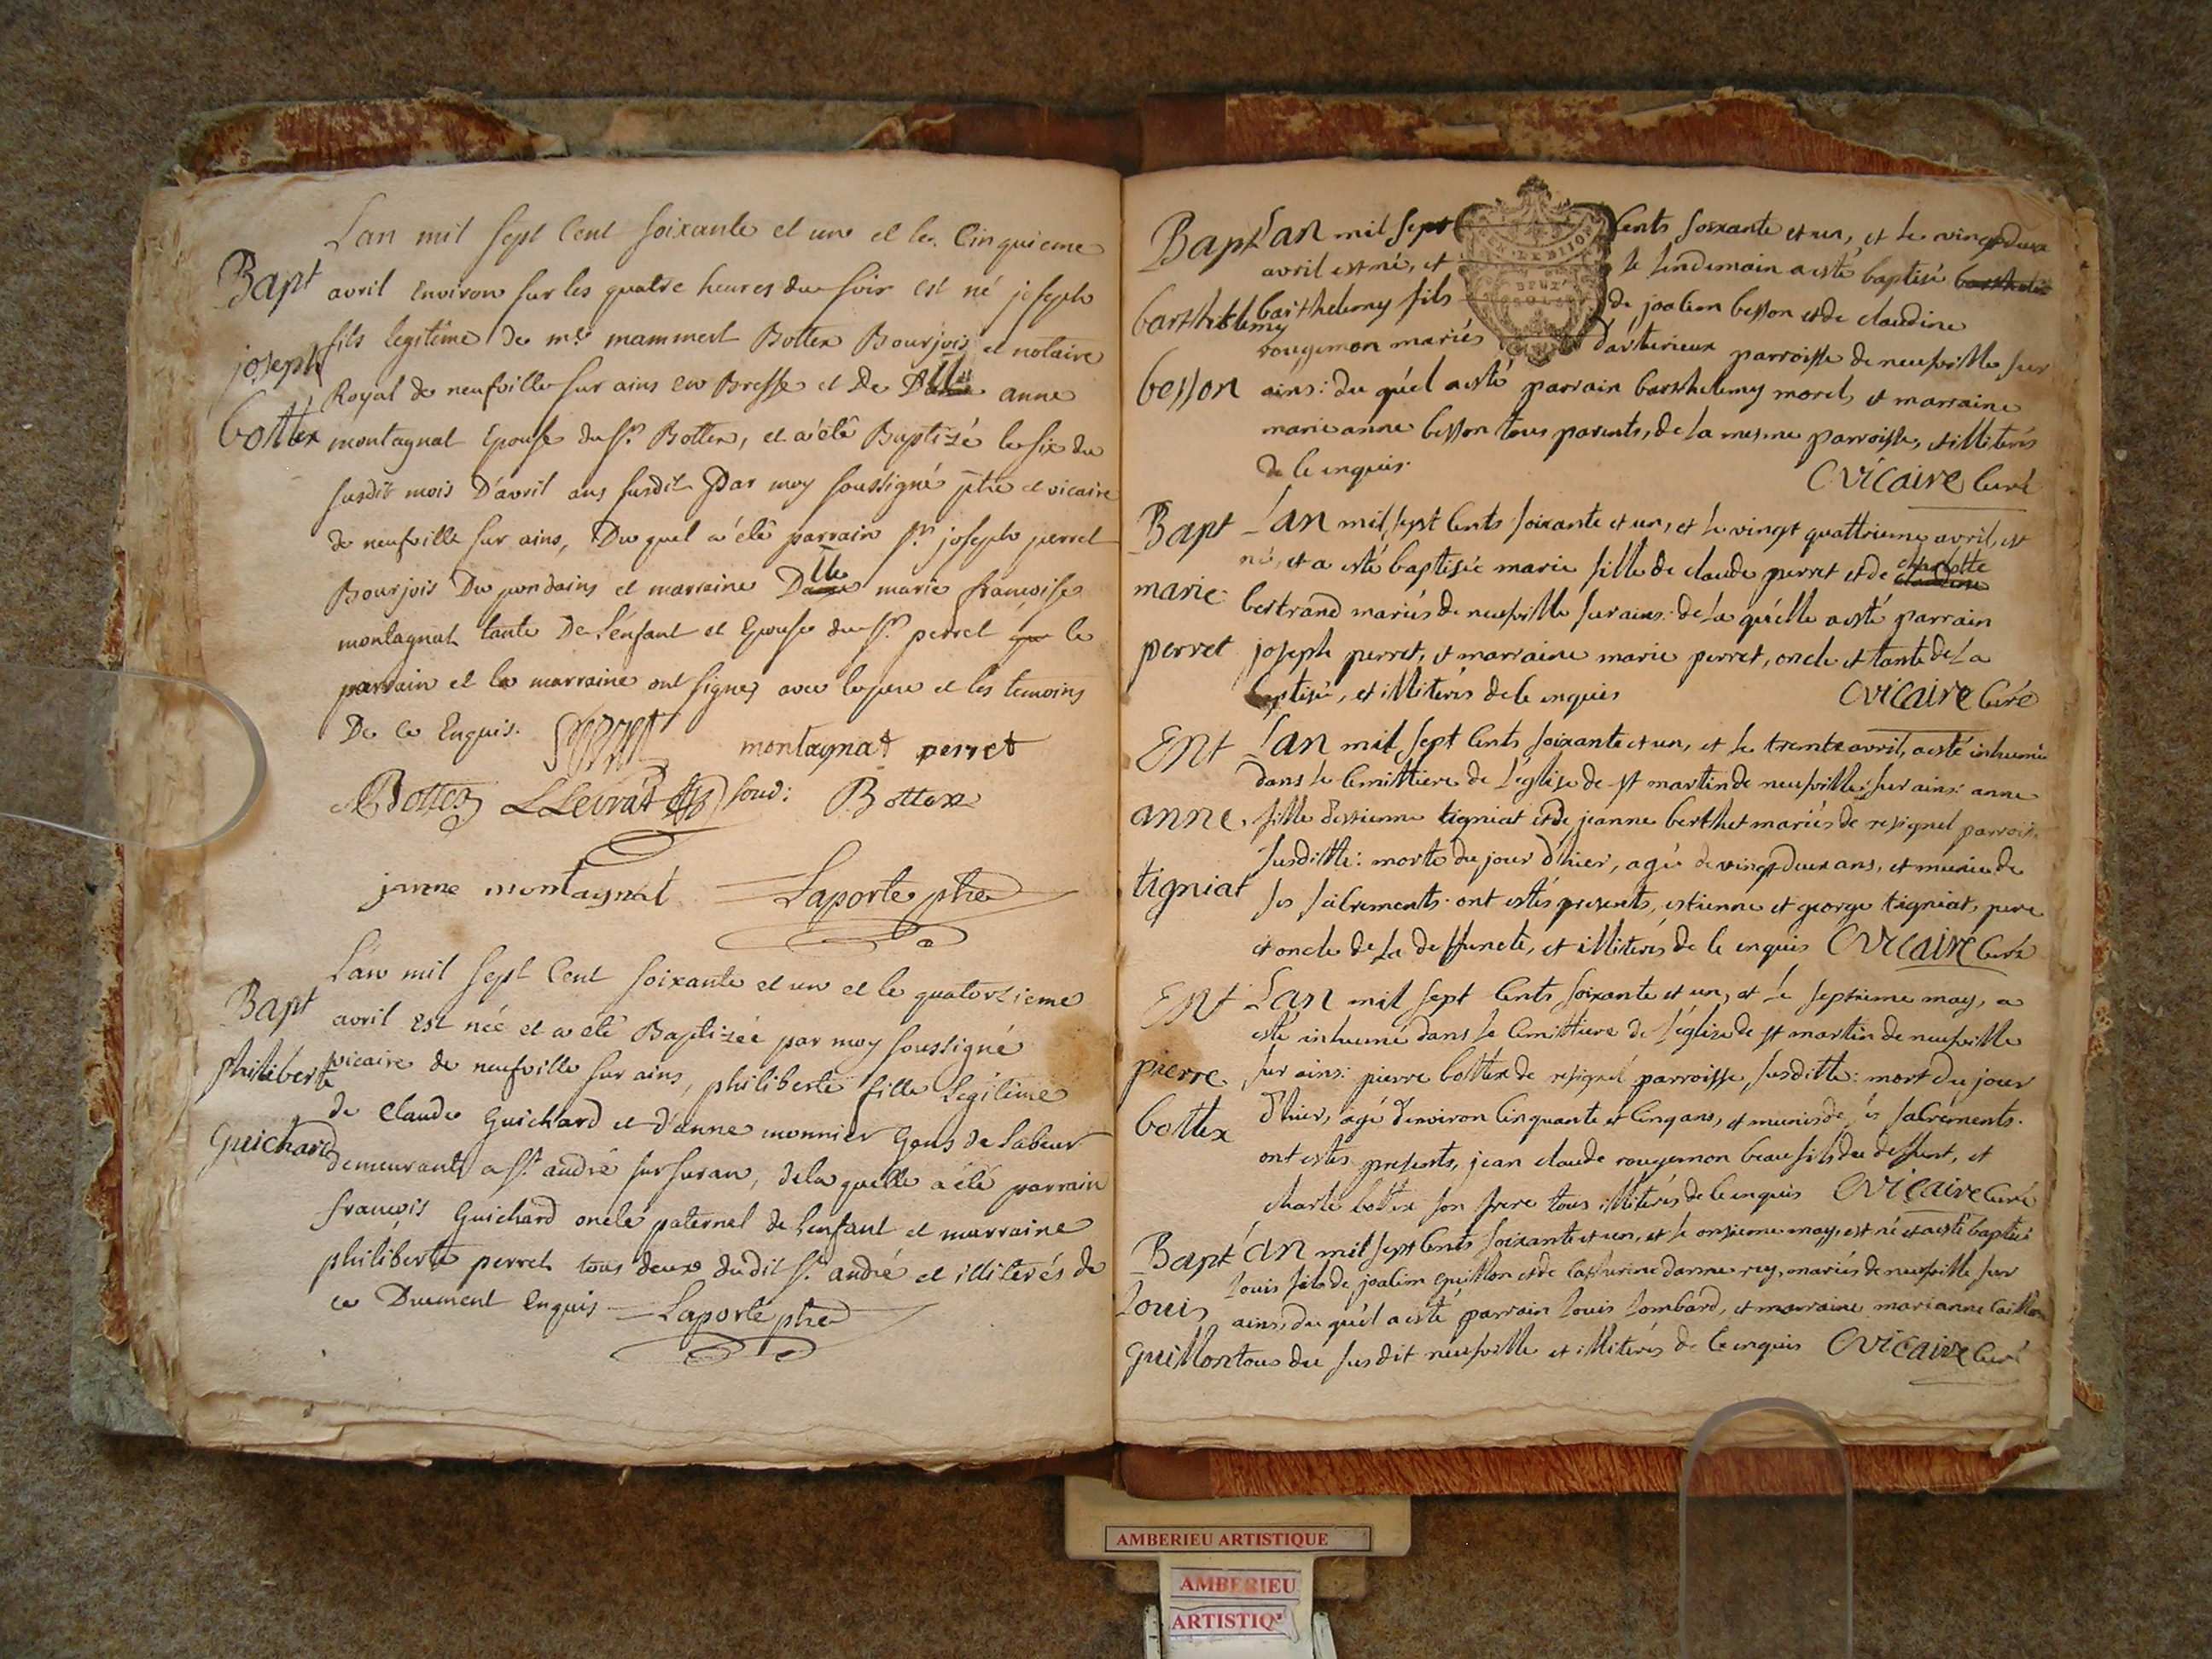 Lan mil sept Cent soixante et une et le Cinquieme
Bapt avril Environ sur les quatre heures du soir est né joseph
fils legitime de me mammert Bottex Bourjois et notaire
joseph Royal de neufville sur ains en Bresse et De Dlle anne
bottex montagnat Epouse du sr Bottex, et a été Baptizé le six du
susdit mois D'avril ans susdit Par moy soussigné ptre et vicaire
de neufville sur ains, Du quel a été parrain sr joseph perret
Bourjois Du pondains et marraine Dlle marie francoise
montagnat tante De l'enfant et Epouse du sr perret que le
parrain et la marraine ont signez avec le pere et les temoins
De ce Enquis.
montagnat perret
Bottex LLevrat Bottex
jeanne montagnat Laporte ptre
L'an mil sept Cent soixante et un et le quatorzieme
Bapt avril est née et a été Baptizée par moy soussigné
philiberte vicaire de neufville sur ains, philiberte fille Legitime
de Claude Guichard et d'anne monnier Gens de Labeur
Guichard demeurants a St andré sur suran, de la quelle a été parrain
francois Guichard oncle paternel de l'enfant et marraine
philiberte perret tous deux dudit St andré et illiterés de
ce Duement Enquis Laporte ptre
Bapt Lan mil sept Cents soixante et un, et le vingt deux
avril est né, et le lendemain a esté baptisé
barthelemy barthelemy fils de joachim besson et de claudine
rougemon mariés d'arterieux parroisse de neufville sur
besson ains: du quel a esté parrain barthelemy morel, et marraine
marie anne besson tous parents, de la mesme parroisse, et illiterés
de ce enquis.
Ovicaire Curé
Bapt Lan mil sept Cents soixante et un, et le vingt quattrieme avril, est
né, et a esté baptisée marie fille de claude perret et de charlotte
marie bertrand mariés de neufville sur ains: de la quelle a esté parrain
perret joseph perret, et marraine marie perret, oncle et tante de La
baptisée, et illiterés de ce enquis Ovicaire Curé
Ent Lan mil sept Cents soixante et un, et le trente avril, a esté inhumée
dans le Cemittiere de L'église de st martin de neufville sur ains: anne
anne fille d'estienne tigniat et de jeanne berthet mariés de resignel parrois.
susditte: morte du jour d'hier, agée de vingt deux ans, et munie de
tigniat ses sacrements. ont estés presents, estienne et george tigniat, pere
et oncle de La deffuncte, et illiterés de ce enquis Ovicaire Curé
Ent Lan mil sept Cents soixante et un, et le septieme may, a
esté inhumé dans le Cemittiere de l'église de st martin de neufville
pierre sur ains: pierre bottex de resignel parroisse susditte: mort du jour
bottex d'hier, agé d'environ Cinquante et Cinq ans, et munis de ses sacréments.
ont estés presents, jean claude rougemon beau fils du deffunt, et
charle bottex son frere tous illiterés de ce enquis Ovicaire Curé
Bapt Lan mil sept Cents soixante et un, et le onzieme may, est né et a esté baptisé
Louis Louis fils de joachim guillon et de Catherine mariés de neufville sur
ains, du quel a esté parrain Louis Lombard, et marraine marianne
guillon tous du susdit neufville et illiterés de ce enquis Ovicaire Curé
AMBERIEU ARTISTIQUE
AMBERIEU
ARTISTIQ